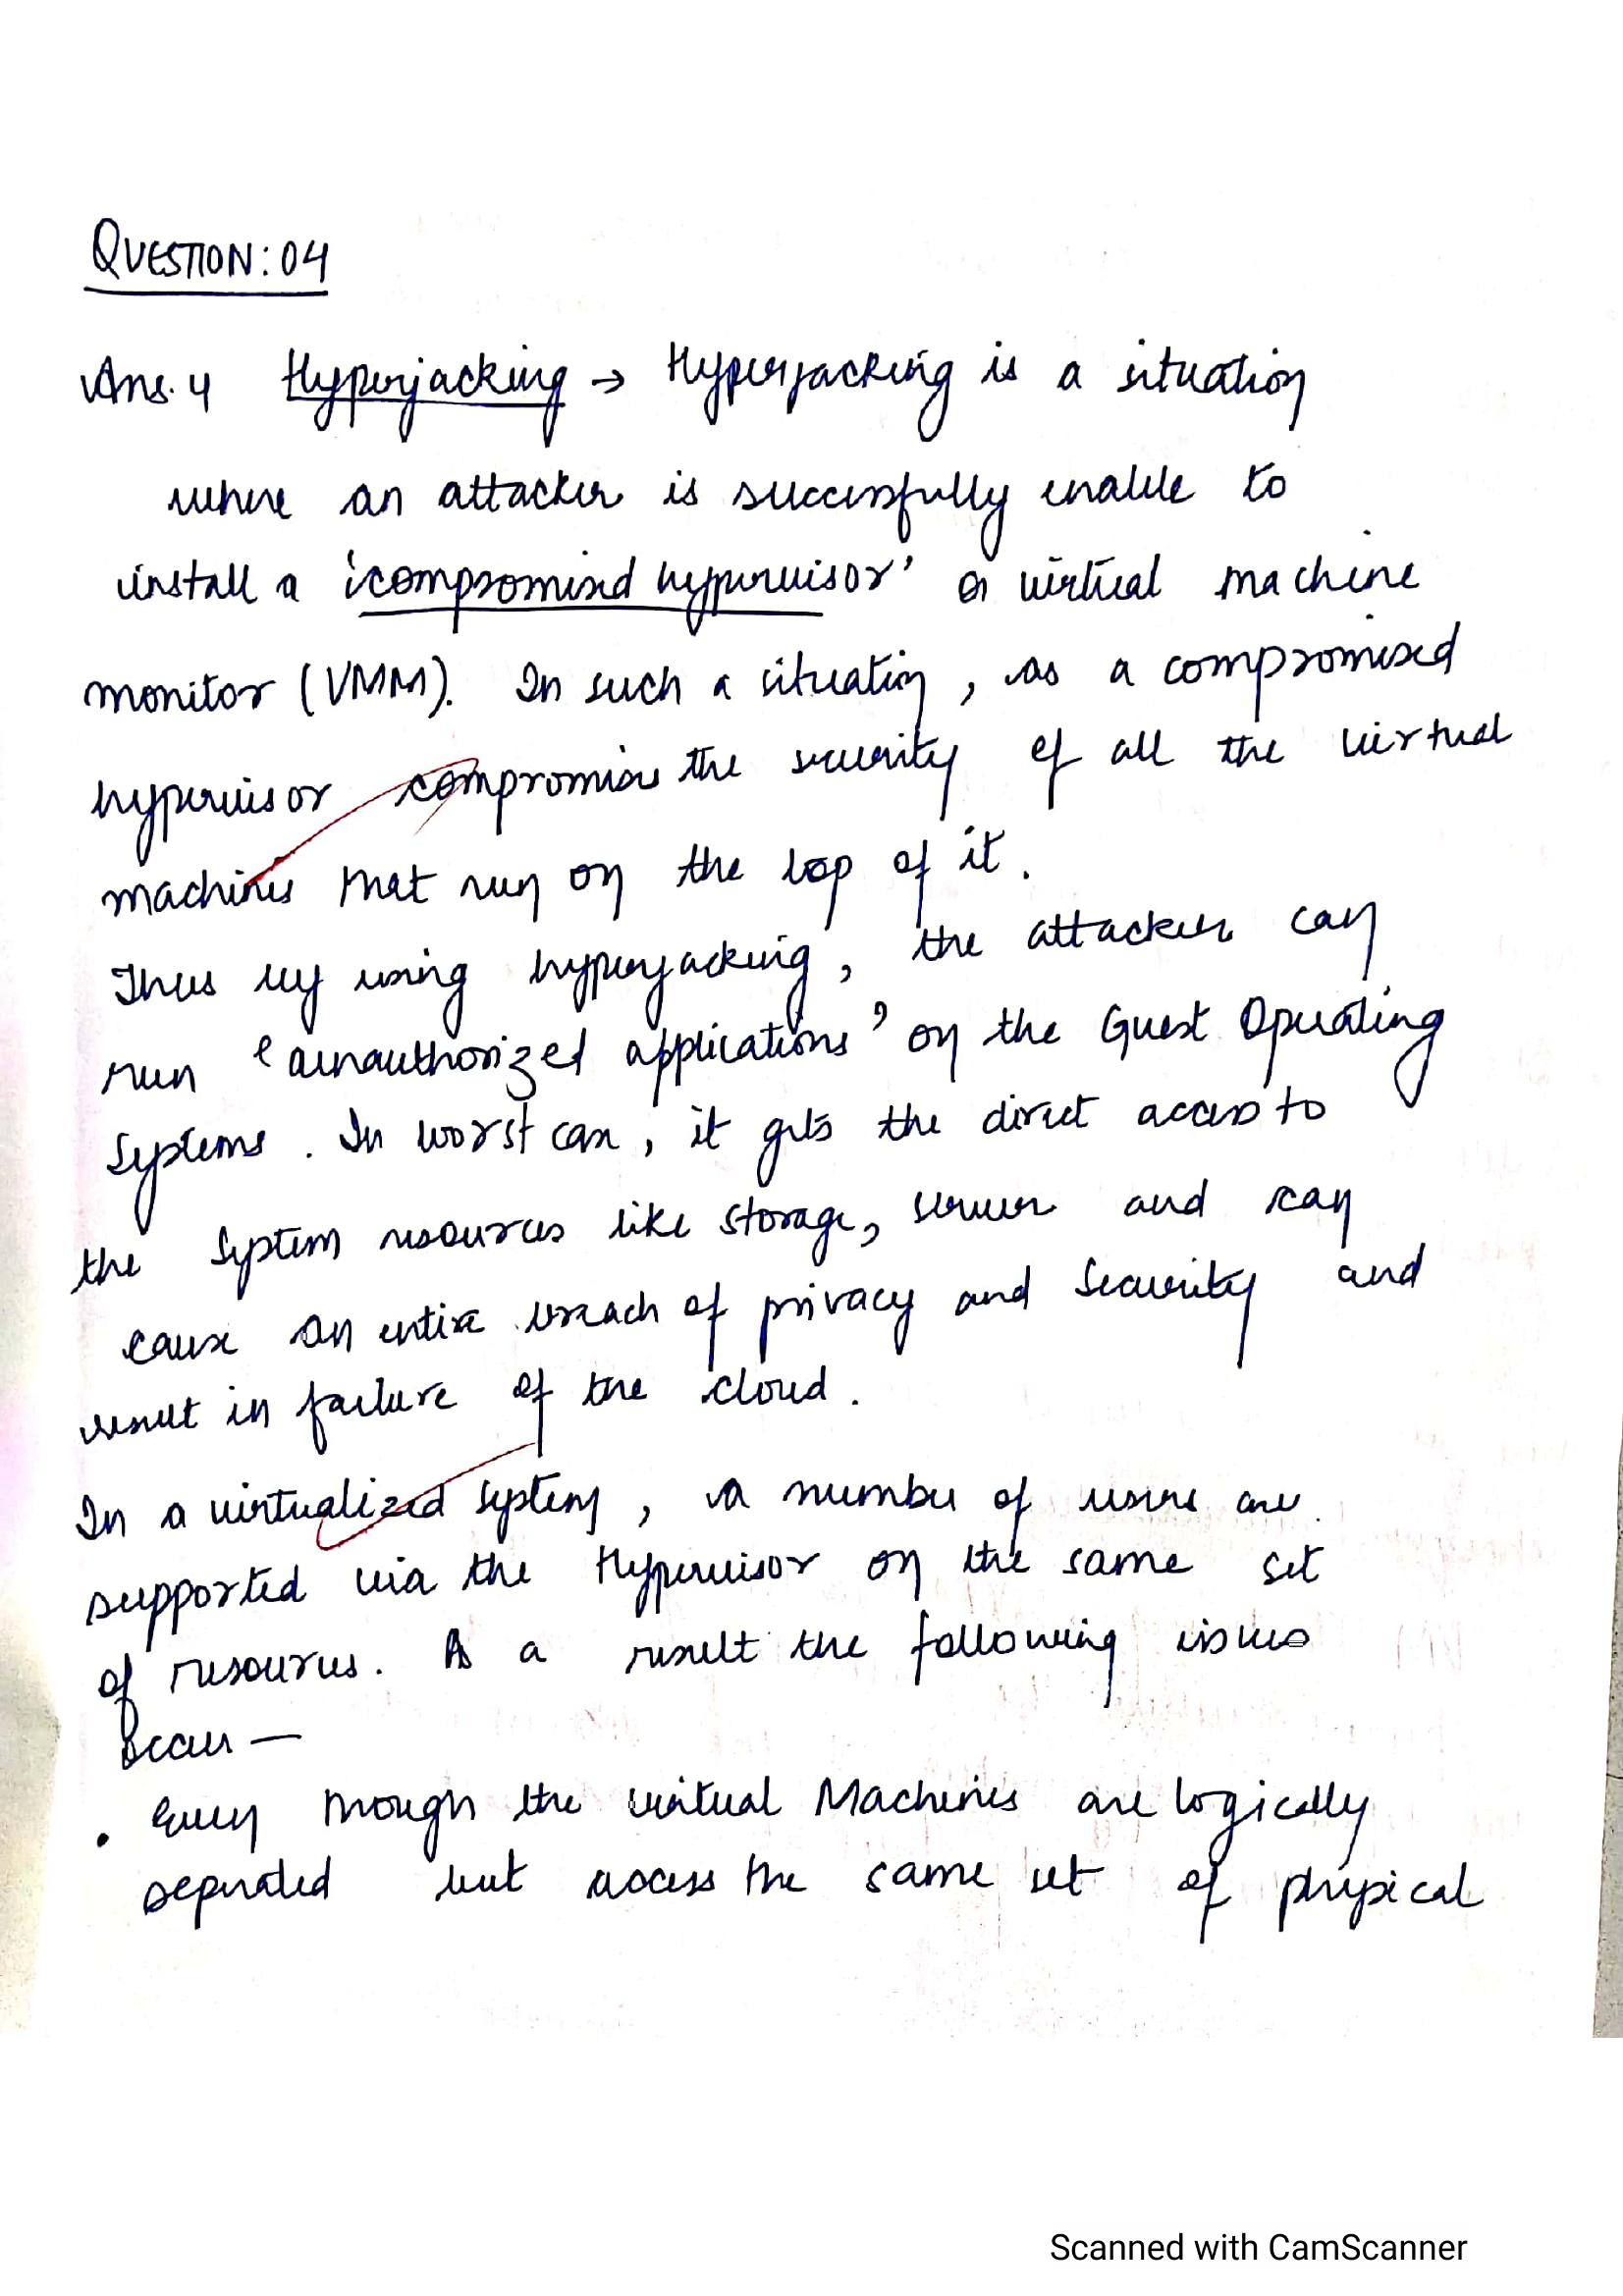 QUESTION: 04
Ans. 4 Hyperjacking → Hyperjacking is a situation
where an attacker is successfully enable to
install a 'compromised hypervisor' or virtual machine
monitor (VMM). In such a situation, as a compromised
hypervisor compromises the security of all the virtual
machines that run on the top of it.
Thus by using hyperjacking, the attacker can
run 'unauthorized applications' on the Guest Operating
Systems. In worst case, it gets the direct access to
the system resources like storage, server and can
cause an entire breach of privacy and security and
result in failure of the cloud.
In a virtualized system, a number of users are
supported via the Hypervisor on the same set
of resources. As a result the following issues
occur —
• Even though the virtual Machines are logically
seperated but access the same set of physical
Scanned with CamScanner